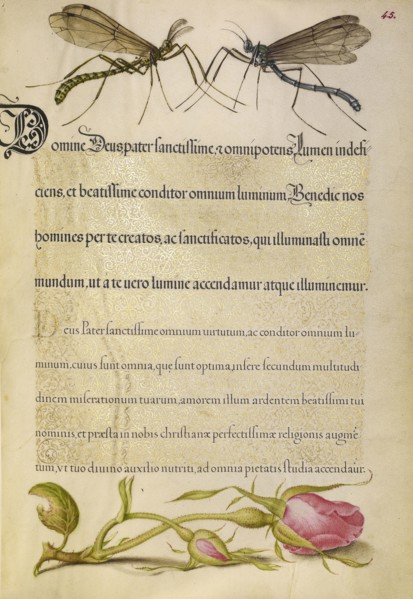 45.
Domine Deus pater sanctissime, & omnipotens, Lumen indefi
ciens, et beatissime conditor omnium luminum Benedic nos
homines per te creatos, ac sanctificatos, qui illuminasti omnē
mundum, ut a te uero lumine accendamur atque illuminemur.
Deus Pater sanctissime omnium uirtutum, ac conditor omnium lu-
minum, cuius sunt omnia, quę sunt optima, insere secundum multitudi
dinem miserationum tuarum, amorem illum ardentem beatissimi tui
nominis, et præsta in nobis christianæ perfectissimæ religionis augmē
tum, vt tuo diuino auxilio nutriti, ad omnia pietatis studia accendaur.